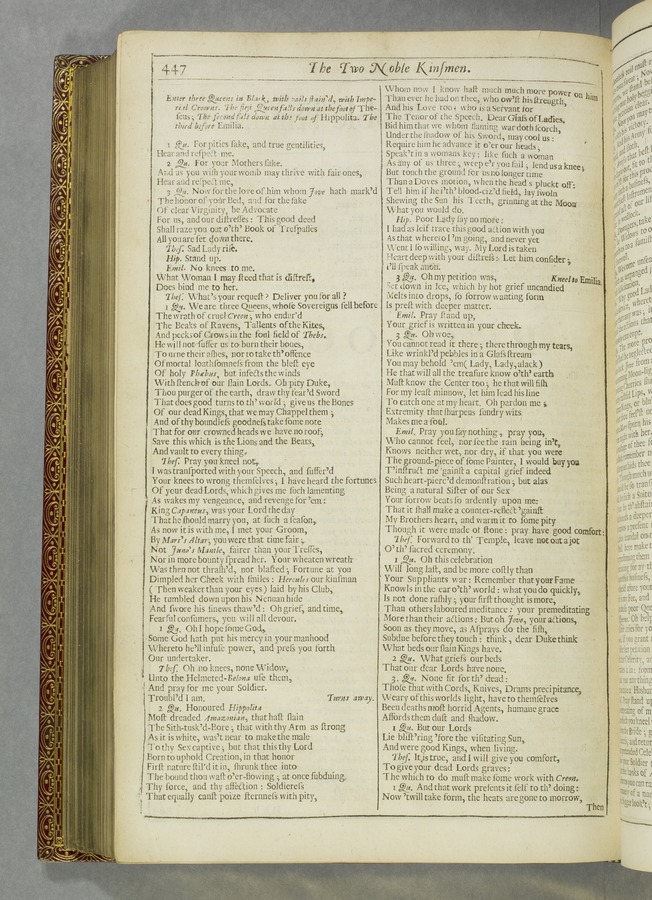 447
The Two Noble Kinſmen.
Enter three Queens in Black, with vails ſtain'd, with Impe-
rial Crowns. The firſt Queen falls down at the foot of The-
ſeus; The ſecond falls down at the foot of Hippolita. The
third before Emilia.
1 Qu. For pities ſake, and true gentilities,
Hear and reſpect me.
2 Qu. For your Mothers ſake,
And as you wiſh your womb may thrive with fair ones,
Hear and reſpect me,
3 Qu. Now for the love of him whom Jove hath mark'd
The honor of your Bed, and for the ſake
Of clear Virginity, be Advocate
For us, and our diſtreſſes: This good deed
Shall raze you out o'th' Book of Treſpaſſes
All you are ſet down there.
Theſ. Sad Lady riſe.
Hip. Stand up.
Emil. No knees to me.
What Woman I may ſteed that is diſtreſt,
Does bind me to her.
Theſ. What's your requeſt? Deliver you for all?
1 Qu. We are three Queens, whoſe Sovereigns fell before
The wrath of cruel Creon; who endur'd
The Beaks of Ravens, Tallents of the Kites,
And pecks of Crows in the foul field of Thebs.
He will not ſuffer us to burn their bones,
To urne their aſhes, nor to take th' offence
Of mortal loathſomneſs from the bleſt eye
Of holy Phœbus, but infects the winds
With ſtench of our ſlain Lords. Oh pity Duke,
Thou purger of the earth, draw thy fear'd Sword
That does good turns to th' world; give us the Bones
Of our dead Kings, that we may Chappel them;
And of thy boundleſs goodneſs take ſome note
That for our crowned heads we have no roof,
Save this which is the Lions and the Bears,
And vault to every thing.
Theſ. Pray you kneel not,
I was tranſported with your Speech, and ſuffer'd
Your knees to wrong themſelves; I have heard the fortunes
Of your dead Lords, which gives me ſuch lamenting
As wakes my vengeance, and revenge for 'em:
King Capaneus, was your Lord the day
That he ſhould marry you, at ſuch a ſeaſon,
As now it is with me, I met your Groom,
By Mars's Altar, you were that time fair;
Not Juno's Mantle, fairer than your Treſſes,
Nor in more bounty ſpread her. Your wheaten wreath
Was then not thraſh'd, nor blaſted; Fortune at you
Dimpled her Cheek with ſmiles: Hercules our kinſman
(Then weaker than your eyes) laid by his Club,
He tumbled down upon his Nenuan hide
And ſwore his ſinews thaw'd: Oh grief, and time,
Fearful conſumers, you will all devour.
1 Qu. Oh I hope ſome God,
Some God hath put his mercy in your manhood
Whereto he'll infuſe power, and preſs you forth
Our undertaker.
Theſ. Oh no knees, none Widow,
Unto the Helmeted-Belona uſe them,
And pray for me your Soldier.
Troubl'd I am. Turns away.
2 Qu. Honoured Hippolita
Moſt dreaded Amazonian, that haſt ſlain
The Sith-tusk'd-Bore; that with thy Arm as ſtrong
As it is white, was't near to make the male
To thy Sex captive; but that this thy Lord
Born to uphold Creation, in that honor
Firſt nature ſtil'd it in, ſhrunk thee into
The bound thou waſt o'er-flowing; at once ſubduing
Thy force, and thy affection: Soldiereſs
That equally canſt poize ſternneſs with pity,
Whom now I know haſt much much more power on him
Than ever he had on thee, who ow'ſt his ſtrength,
And his Love too: who is a Servant for
The Tenor of the Speech, Dear Glaſs of Ladies,
Bid him that we whom flaming war doth ſcorch,
Under the ſhadow of his Sword, may cool us:
Require him he advance it o'er our heads;
Speak't in a womans key: like ſuch a woman
As any of us three; weep e'r you fail; lend us a knee;
But touch the ground for us no longer time
Than a Doves motion, when the head s pluckt off:
Tell him if he i'th' blood-ciz'd field, lay ſwoln
Shewing the Sun his Teeth, grinning at the Moon
What you would do.
Hip. Poor Lady ſay no more:
I had as leif trace this good action with you
As that whereto I'm going, and never yet
Went I ſo willing, way. My Lord is taken
Heart deep with your diſtreſs: Let him conſider;
I'll ſpeak anon.
3 Qu. Oh my petition was, Kneel to Emilia.
Set down in Ice, which by hot grief uncandied
Melts into drops, ſo ſorrow wanting form
Is preſt with deeper matter.
Emil. Pray ſtand up,
Your grief is written in your cheek.
3 Qu. Oh woe,
You cannot read it there; there through my tears,
Like wrinkl'd pebbles in a Glaſs ſtream
You may behold 'em (Lady, Lady, alack)
He that will all the treaſure know o'th' earth
Muſt know the Center too; he that will fiſh
For my leaſt minnow, let him lead his line
To catch one at my heart. Oh pardon me;
Extremity that ſharpens ſundry wits
Makes me a fool.
Emil. Pray you ſay nothing, pray you,
Who cannot feel, nor ſee the rain being in't,
Knows neither wet, nor dry, if that you were
The ground-piece of ſome Painter, I would buy you
T'inſtruct me 'gainſt a capital grief indeed
Such heart-pierc'd demonſtration; but alas
Being a natural Siſter of our Sex
Your ſorrow beats ſo ardently upon me:
That it ſhall make a counter-reflect 'gainſt
My Brothers heart, and warm it to ſome pity
Though it were made of ſtone: pray have good comfort:
Theſ. Forward to th' Temple, leave not out a jot
O'th' ſacred ceremony.
1 Qu. Oh this celebration
Will long laſt, and be more coſtly than
Your Suppliants war: Remember that your Fame
Knowls in the ear o'th' world: what you do quickly,
Is not done raſhly; your firſt thought is more,
Than others laboured meditance: your premeditating
More than their actions: But oh Jove, your actions,
Soon as they move, as Aſprays do the fiſh,
Subdue before they touch: think, dear Duke think
What beds our ſlain Kings have.
2 Qu. What griefs our beds
That our dear Lords have none.
3. Qu. None fit for th' dead:
Thoſe that with Cords, Knives, Drams precipitance,
Weary of this worlds light, have to themſelves
Been deaths moſt horrid Agents, humane grace
Affords them duſt and ſhadow.
1 Qu. But our Lords
Lie bliſt'ring 'fore the viſitating Sun,
And were good Kings, when living.
Theſ. It is true, and I will give you comfort,
To give your dead Lords graves:
The which to do muſt make ſome work with Creon.
1 Qu. And that work preſents it ſelf to th' doing:
Now 'twill take form, the heats are gone to morrow,
Then